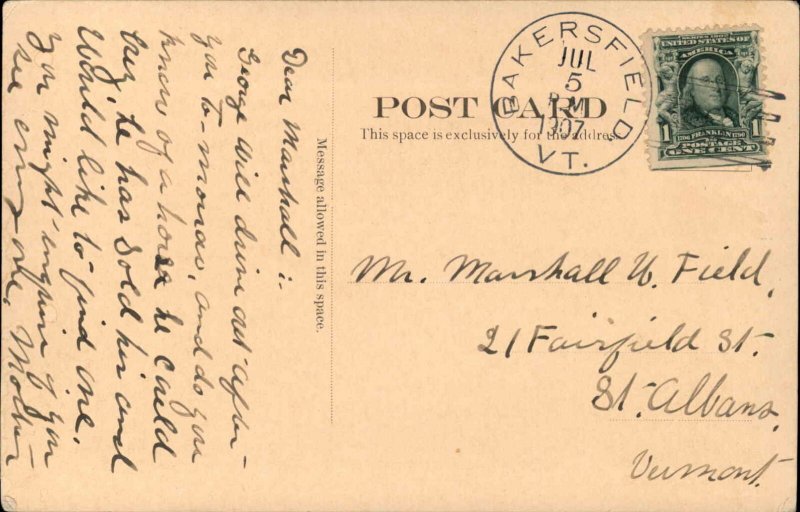 BAKERSFIELD,
JUL
5
P.M
1907
VT.
SERIES 1902
UNITED STATES OF
AMERICA
1706 FRANKLIN 1790
1 POSTAGE 1
ONE CENT
POST CARD
This space is exclusively for the address
Message allowed in this space.
Dear Marshall :-
George will drive out after
you to-morrow, and do you
know of a horse he could
buy, he has sold his and
Would like to find one.
You might inquire if you
see any one. Mother
Mr. Marshall W. Field,
21 Fairfield St.
St. Albans,
Vermont.